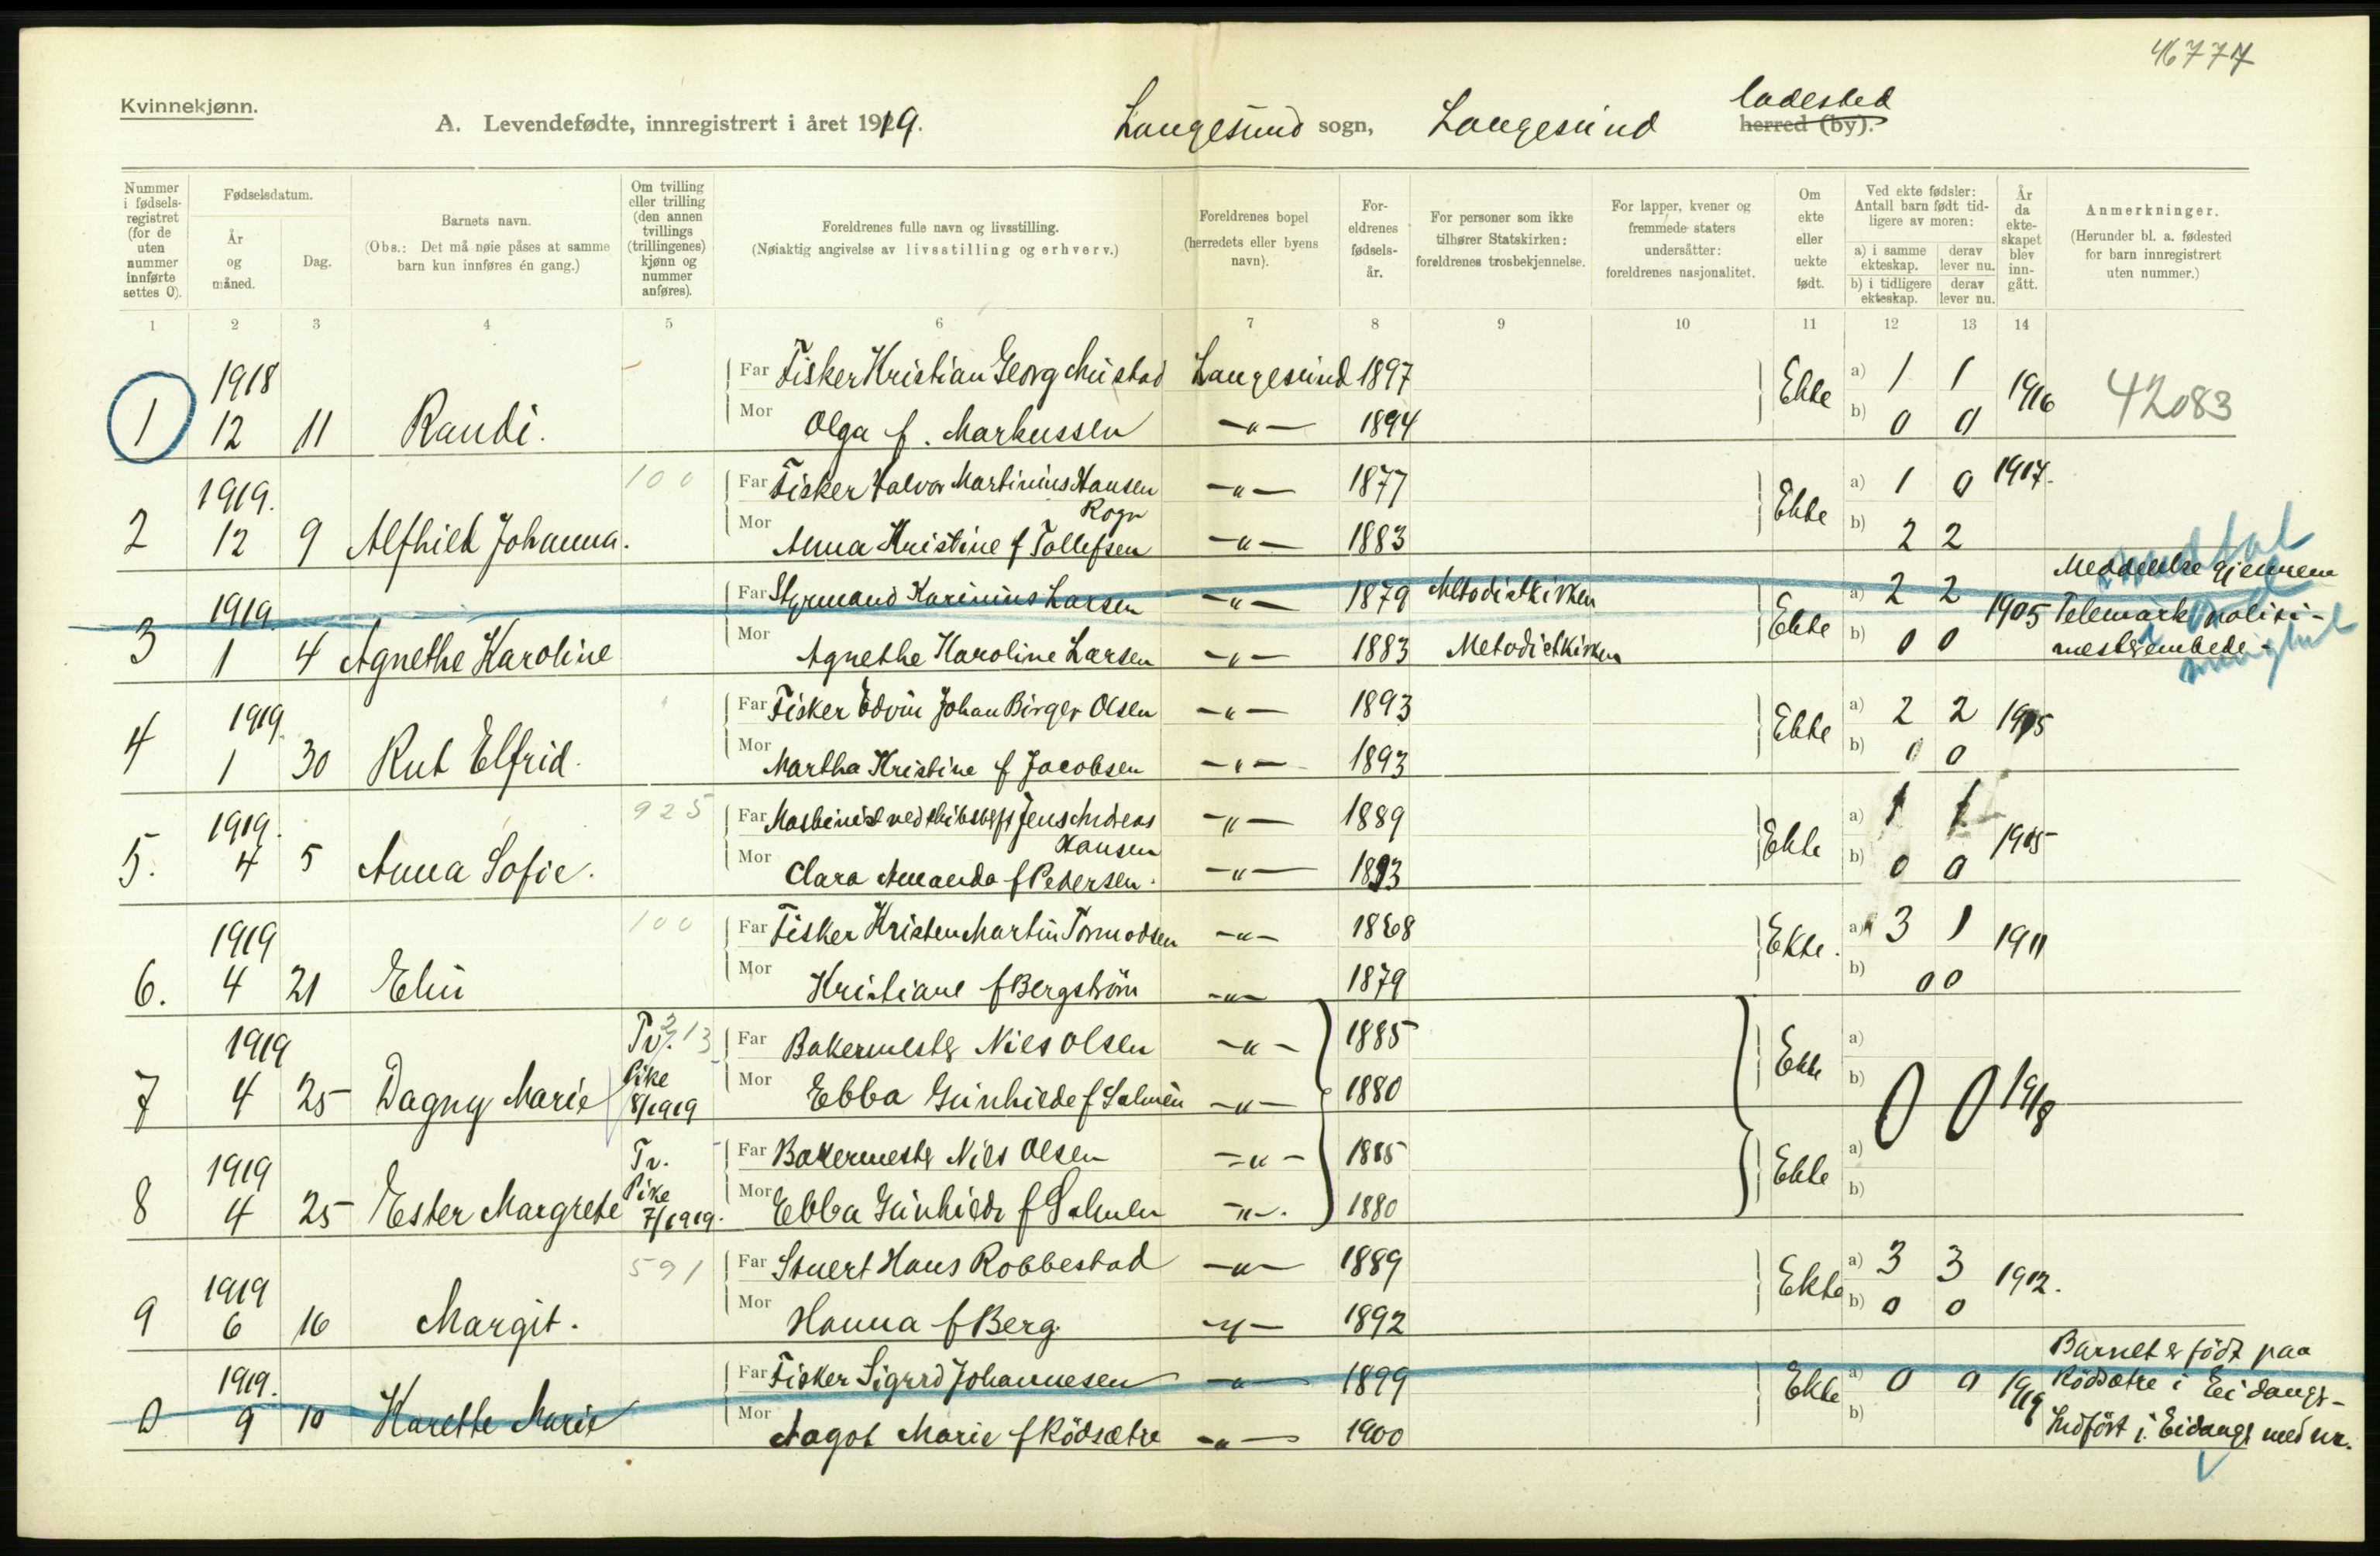 46777
Kvinnekjønn.
A. Levendefødte, innregistrert i året 1919. Langesund sogn, Langesund ladested herred (by).
Nummer i fødsels-registret (for de uten nummer innførte settes 0).
Fødselsdatum.
År og måned.
Dag.
Barnets navn.
(Obs.: Det må nøie påses at samme barn kun innføres én gang.)
Om tvilling eller trilling (den annen tvillings (trillingenes) kjønn og nummer anføres).
Foreldrenes fulle navn og livsstilling.
(Nøiaktig angivelse av livsstilling og erhverv.)
Foreldrenes bopel (herredets eller byens navn).
For-eldrenes fødsels-år.
For personer som ikke tilhører Statskirken: foreldrenes trosbekjennelse.
For lapper, kvener og fremmede staters undersåtter: foreldrenes nasjonalitet.
Om ekte eller uekte født.
Ved ekte fødsler: Antall barn født tid-ligere av moren:
a) i samme ekteskap. derav lever nu.
b) i tidligere ekteskap. derav lever nu.
År da ekte-skapet blev inn-gått.
Anmerkninger.
(Herunder bl. a. fødested for barn innregistrert uten nummer.)
1 2 3 4 5 6 7 8 9 10 11 12 13 14
1 1918 12 11 Randi.
Far Fisker Kristian Georg Mustad Langesund 1897 Ekte a) 1 1 1916 42083
Mor Olga f. Markussen -"- 1894 b) 0 0
2 1919. 12 9 Alfhild Johanna. 100
Far Fisker Halvor Martinius Hansen Rogn -"- 1877 Ekte a) 1 0 1917.
Mor Anna Kristine f Tollefsen -"- 1883 b) 2 2
3 1919. 1 4 Agnethe Karoline
Far Styrmand Karinius Larsen -"- 1879 Metodistkirken Ekte a) 2 2 1905
Mor Agnethe Karoline Larsen -"- 1883 Metodistkirken b) 0 0
Meddelelse gjennem
Telemark politi-
mesterembede.
4 1919. 1 30 Rut Elfrid.
Far Fisker Edvin Johan Birger Olsen -"- 1893 Ekte a) 2 2 1915
Mor Martha Kristine f Jacobsen -"- 1893 b) 0 0
5. 1919. 4 5 Anna Sofie. 925
Far Maskinist ved Jens Andreas Hansen -"- 1889 Ekte a) 1 1 1915
Mor Clara Amanda f Pedersen. -"- 1893 b) 0 0
6. 1919 4 21 Elin 100
Far Fisker Kristen Martin Tormodsen -"- 1868 Ekte. a) 3 1 1911
Mor Kristiane f Bergström -"- 1879 b) 0 0
7 1919 4 25 Dagny Marie Tv. Pike 8/1919
Far Bakermester Nils Olsen -"- 1885 Ekte a)
Mor Ebba Gunhilde f Salmén -"- 1880 b) 0 0 1918
8 1919 4 25 Ester Margrete Tv. Pike 7/1919.
Far Bakermester Nils Olsen -"- 1885 Ekte a)
Mor Ebba Gunhilde f Salmén -"-. 1880 b)
9 1919 6 16 Margit. 591
Far Stuert Hans Robbestad -"- 1889 Ekte a) 3 3 1912.
Mor Hanna f Berg. -"- 1892 b) 0 0
0 1919. 9 10 Karethe Marie
Far Fisker Sigurd Johannesen -"- 1899 Ekte a) 0 0 1919
Mor Aagot Marie f Rödsætre -"- 1900 b)
Barnet er födt paa
Rödsætre i Eidanger-
Indfört i Eidanger med nr.